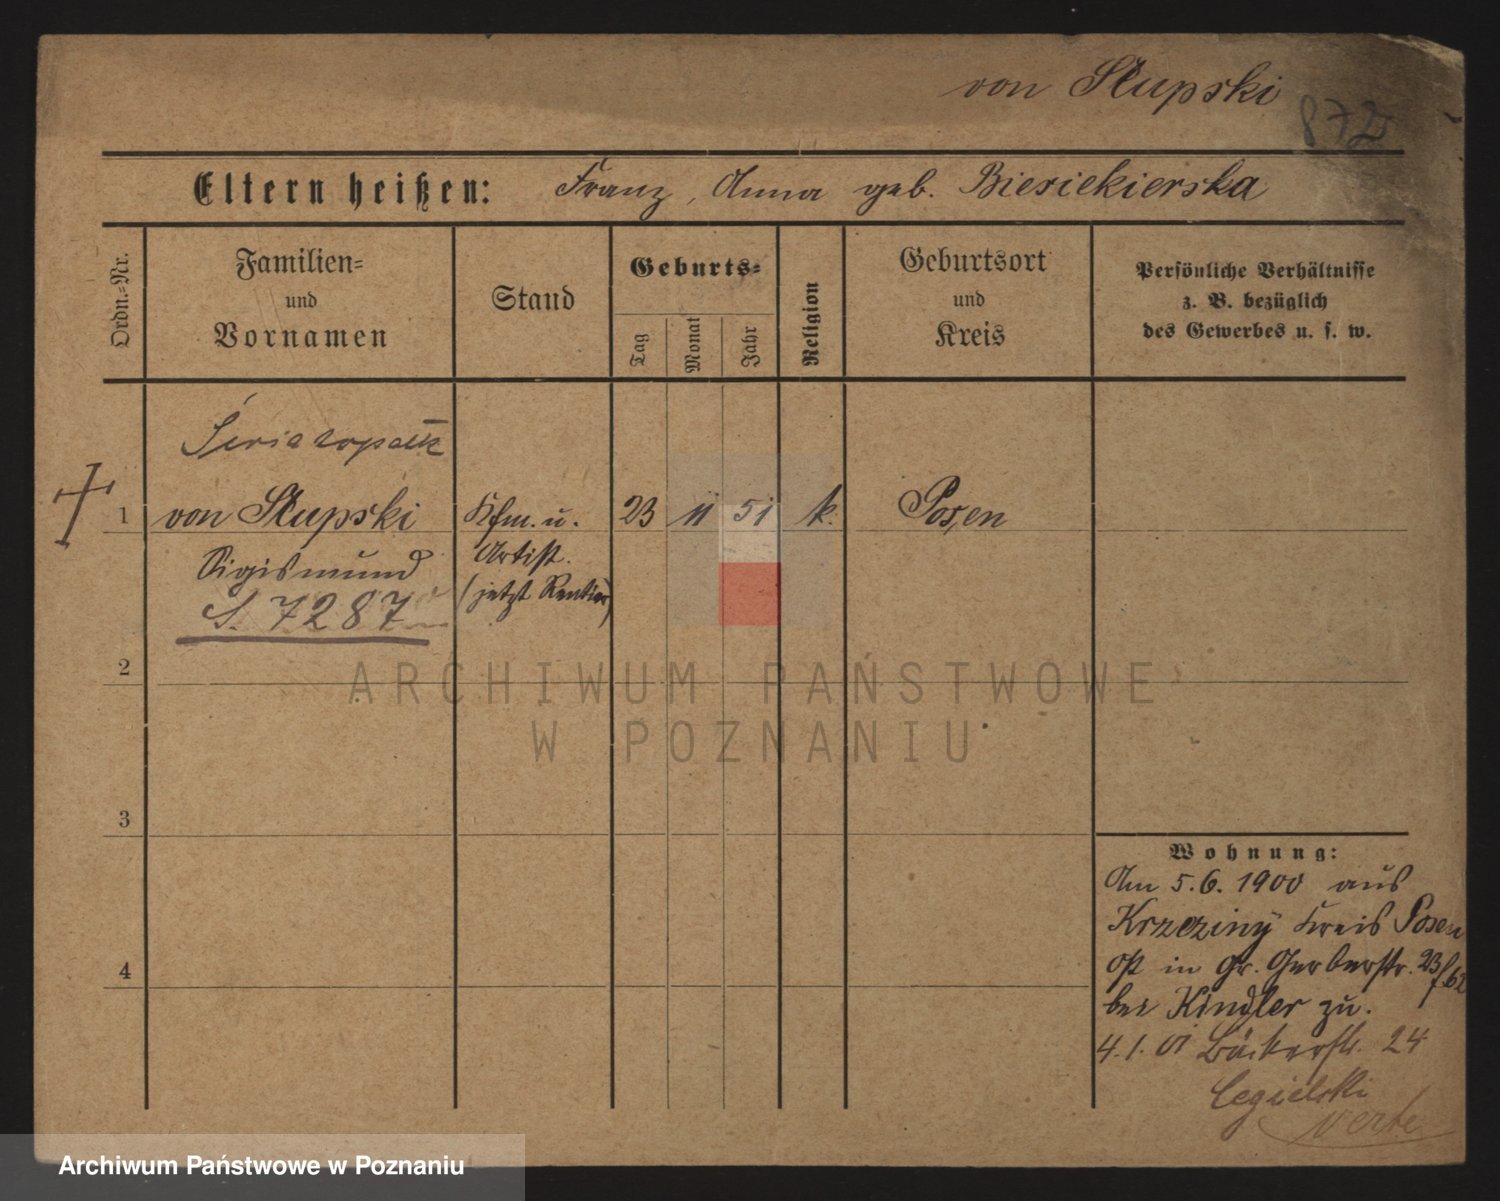 von Słupski
872
Eltern heißen: Franz, Anna geb. Biesiekierska
Ordn.-Nr.
Familien-
und
Vornamen
Stand
Geburts-
Tag
Monat
Jahr
Religion
Geburtsort
und
Kreis
Persönliche Verhältnisse
z. B. bezüglich
des Gewerbes u. s. w.
1 von Słupski Kfm. u. 23 11 51 k. Posen
Sigismund Artist.
(jetzt Rentier)
S. 7287
2
3
4
Wohnung:
Am 5.6. 1900 aus
Krzeziny Kreis Posen
Ost in Gr. Gerberstr. 23
bei Kindler zu.
4.1.01 Bäckerstr. 24
Cegielski
verte
ARCHIWUM PAŃSTWOWE
W POZNANIU
Archiwum Państwowe w Poznaniu